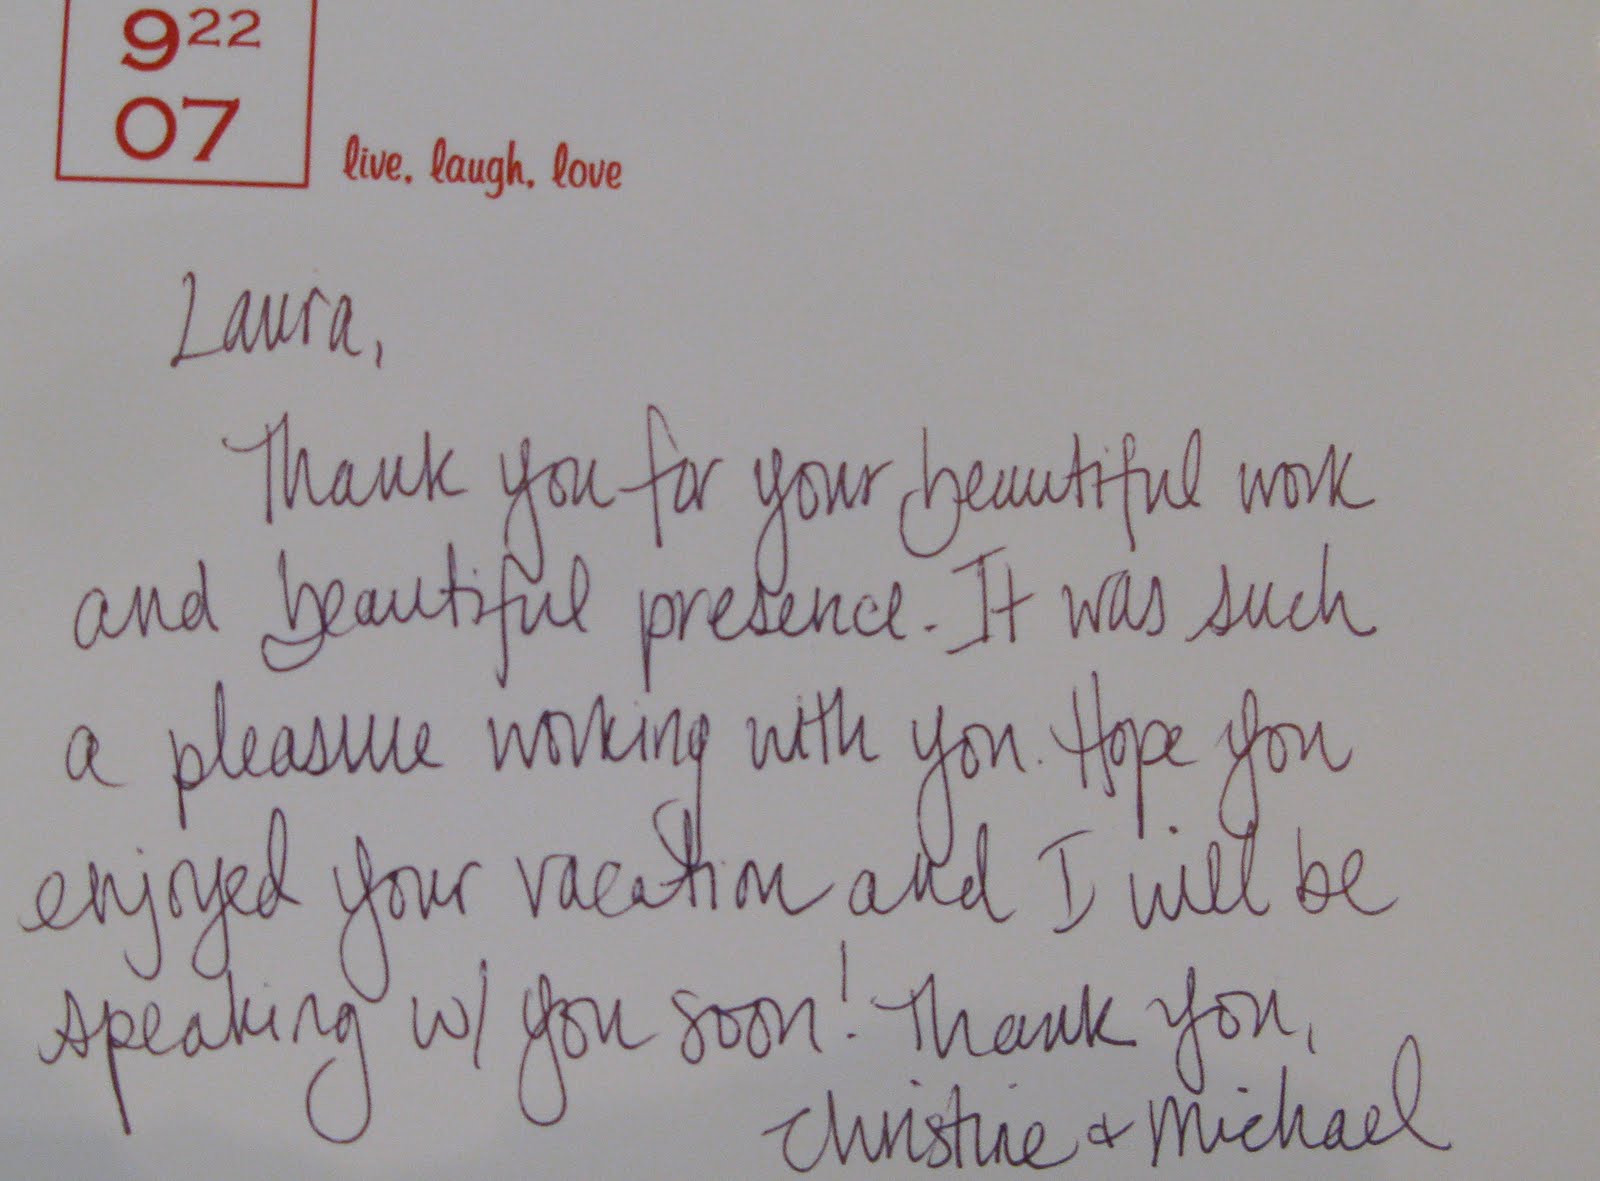 9 22
07
live. laugh. love
Laura,
Thank you for your beautiful work
and beautiful presence. It was such
a pleasure working with you. Hope you
enjoyed your vacation and I will be
speaking w/ you soon! Thank you,
Christine + Michael